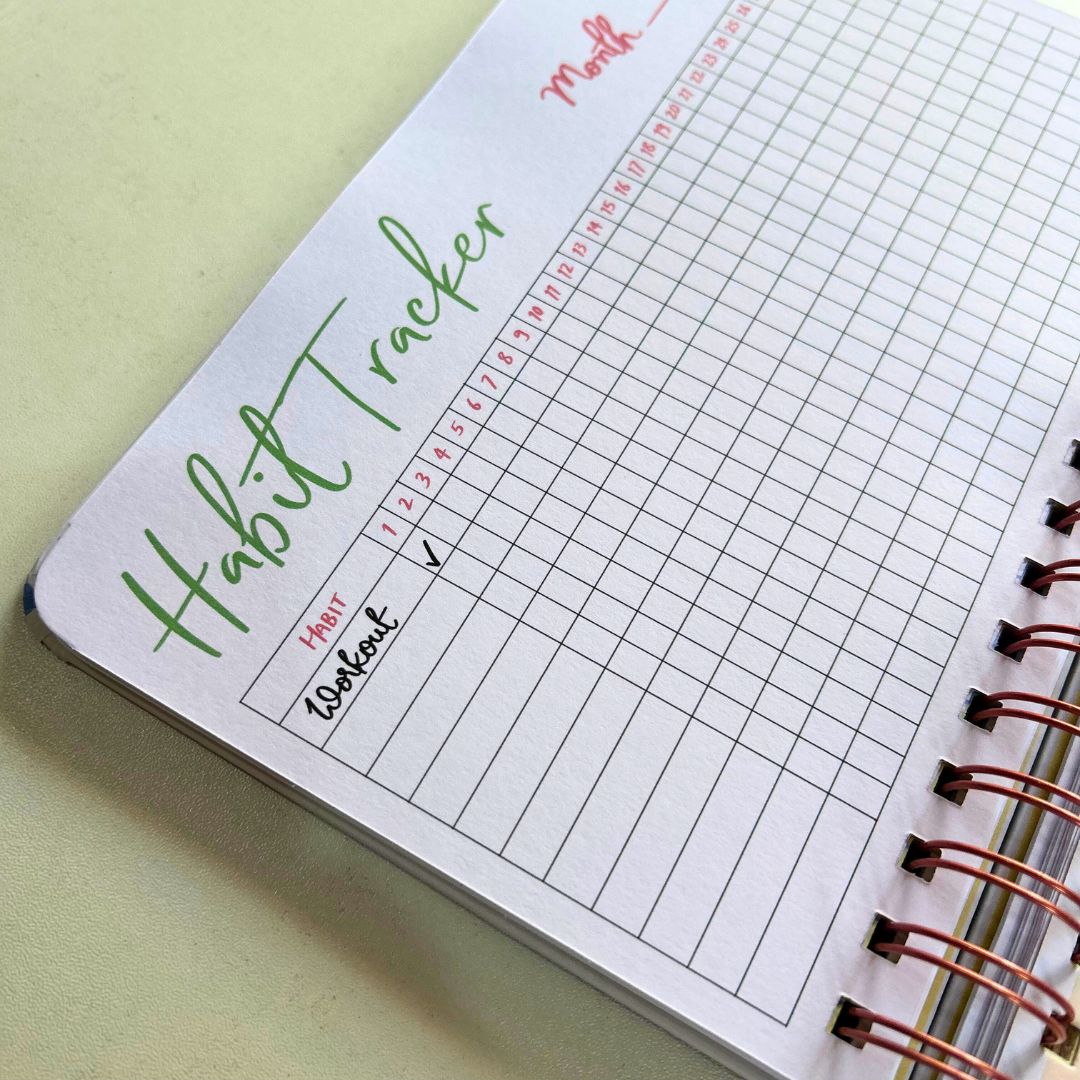 Habit Tracker
Month
HABIT 1 2 3 4 5 6 7 8 9 10 11 12 13 14 15 16 17 18 19 20 21 22 23 24 25 26
Workout ✓